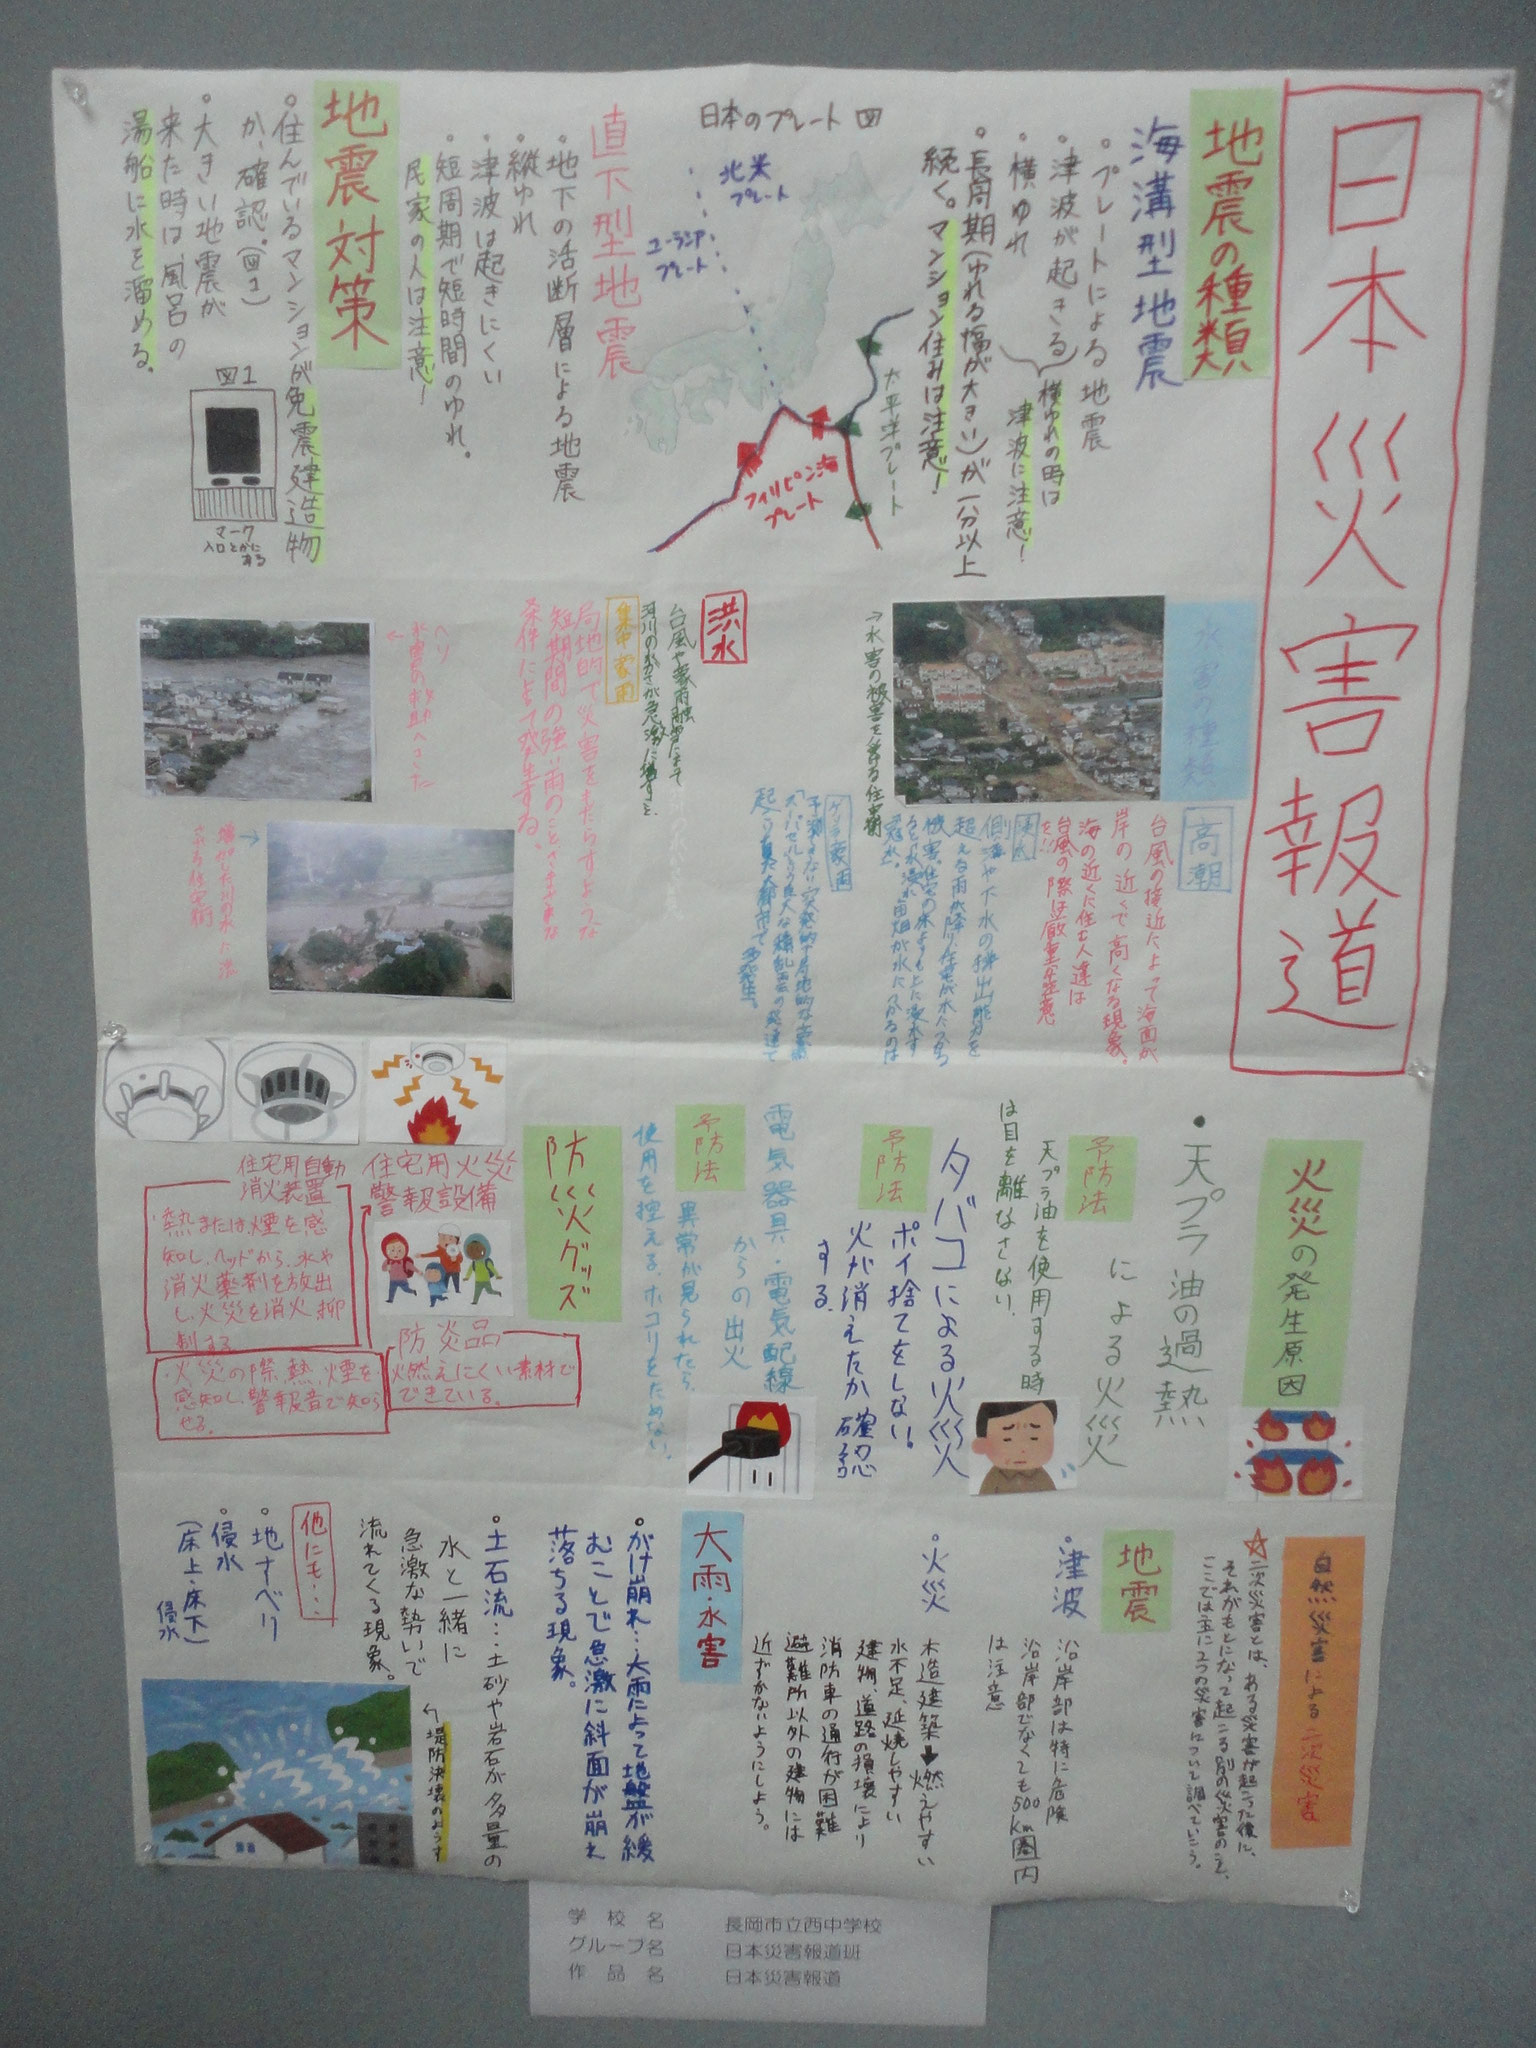 日本災害報道
地震の種類
海溝型地震
・プレートによる地震
・津波が起きる
・横ゆれ
横ゆれの時は
津波に注意!
・長周期(ゆれる幅が大きい)が一分以上
続く。マンション住みは注意!
日本のプレート図
北米
プレート
ユーラシア
プレート
太平洋プレート
フィリピン海
プレート
直下型地震
・地下の活断層による地震
・縦ゆれ
・津波は起きにくい
・短周期で短時間のゆれ。
民家の人は注意!
地震対策
・住んでいるマンションが免震建造物
か、確認。(図1)
・大きい地震が
来た時は、風呂の
湯船に水を溜める。
図1
マーク
入口とかに
ある
水害の種類
高潮
台風の接近によって海面が
岸の近くで高くなる現象。
海の近くに住む人達は
台風の際は厳重注意
を!!
側溝や下水の排出能力を
超える雨が降り、住宅が水につかる
被害。住宅の床よりも上に浸水す
ると床上浸水、田畑が水につかるのは
冠水。
ゲリラ豪雨
予測できない突発的で局地的な豪雨
→水害の被害を受ける住宅街
洪水
台風や豪雨、融雪によって
河川の水かさが急激に増すこと
集中豪雨
局地的で災害をもたらすような
短期間の強い雨のこと。さまざまな
条件によって発生する。
火災の発生原因
・天プラ油の過熱
による火災
予防法
天プラ油を使用する時
は目を離なさない。
タバコによる火災
予防法
ポイ捨てをしない。
火が消えたか確認
する。
電気器具・電気配線
からの出火
予防法
異常が見られたら、
使用を控える、ホコリをためない。
防災グッズ
住宅用火災
警報設備
住宅用自動
消火装置
・熱または煙を感
知し、ヘッドから、水や
消火薬剤を放出
し、火災を消火、抑
制する
・火災の際、熱、煙を
感知し、警報音で知ら
せる。
防炎品
火燃えにくい素材で
できている。
自然災害による二次災害
☆二次災害とは、ある災害が起こった後に、
それがもとになって起こる別の災害のこと。
ここでは主に2つの災害について調べていこう。
地震
・津波
沿岸部は特に危険
沿岸部でなくても500km圏内
は注意
・火災
木造建築➡燃えやすい
水不足、延焼しやすい
建物、道路の損壊により
消防車の通行が困難
避難所以外の建物には
近ずかないようにしよう。
大雨・水害
・がけ崩れ…大雨によって地盤が緩
むことで急激に斜面が崩れ
落ちる現象。
・土石流…土砂や岩石が多量の
水と一緒に
急激な勢いで
流れてくる現象。
他にも…
・地すべり
・侵水
(床上・床下)
侵水
堤防決壊のようす
学校名 長岡市立西中学校
グループ名 日本災害報道班
作品名 日本災害報道